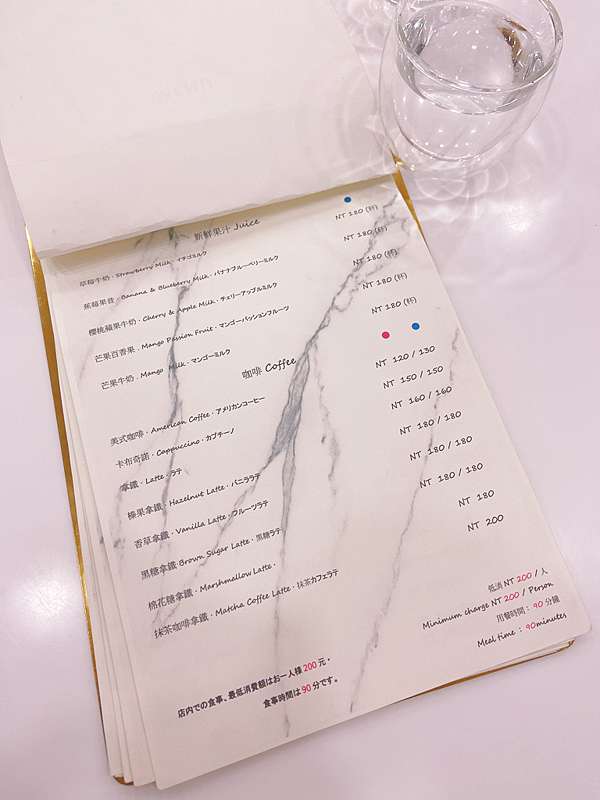 新鮮果汁 Juice
草莓牛奶．Strawberry Milk．イチゴミルク NT 180 (杯)
蕉莓果昔．Banana & Blueberry Milk．バナナブルーベリーミルク NT 180 (杯)
櫻桃蘋果牛奶．Cherry & Apple Milk．チェリーアップルミルク NT 180 (杯)
芒果百香果．Mango Passion Fruit．マンゴーパッションフルーツ NT 180 (杯)
芒果牛奶．Mango Milk．マンゴーミルク NT 180 (杯)
咖啡 Coffee
美式咖啡．American Coffee．アメリカンコーヒー NT 120 / 130
卡布奇諾．Cappuccino．カプチーノ NT 150 / 150
拿鐵．Latte．ラテ NT 160 / 160
榛果拿鐵．Hazelnut Latte．バニララテ NT 180 / 180
香草拿鐵．Vanilla Latte．フルーツラテ NT 180 / 180
黑糖拿鐵 Brown Sugar Latte．黒糖ラテ NT 180 / 180
棉花糖拿鐵．Marshmallow Latte． NT 180
抹茶咖啡拿鐵．Matcha Coffee Latte．抹茶カフェラテ NT 200
低消 NT 200 / 人
Minimum charge NT 200 / Person
用餐時間：90 分鐘
Meal time：90minutes
店内での食事、最低消費額はお一人様 200 元。
食事時間は 90 分です。